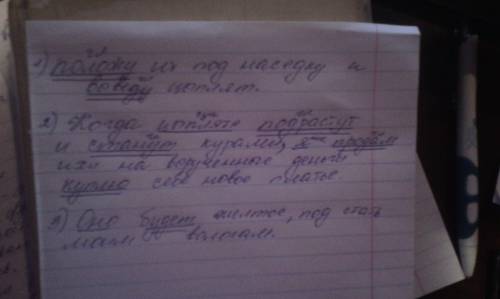 1) положу их под наседку и
выведу цыплят.
2) Когда цыплята подрастут
и станут курами, продам
их и на вырученные деньги
куплю себе новое платье.
3) Оно будет желтое, под стать
моим волосам.